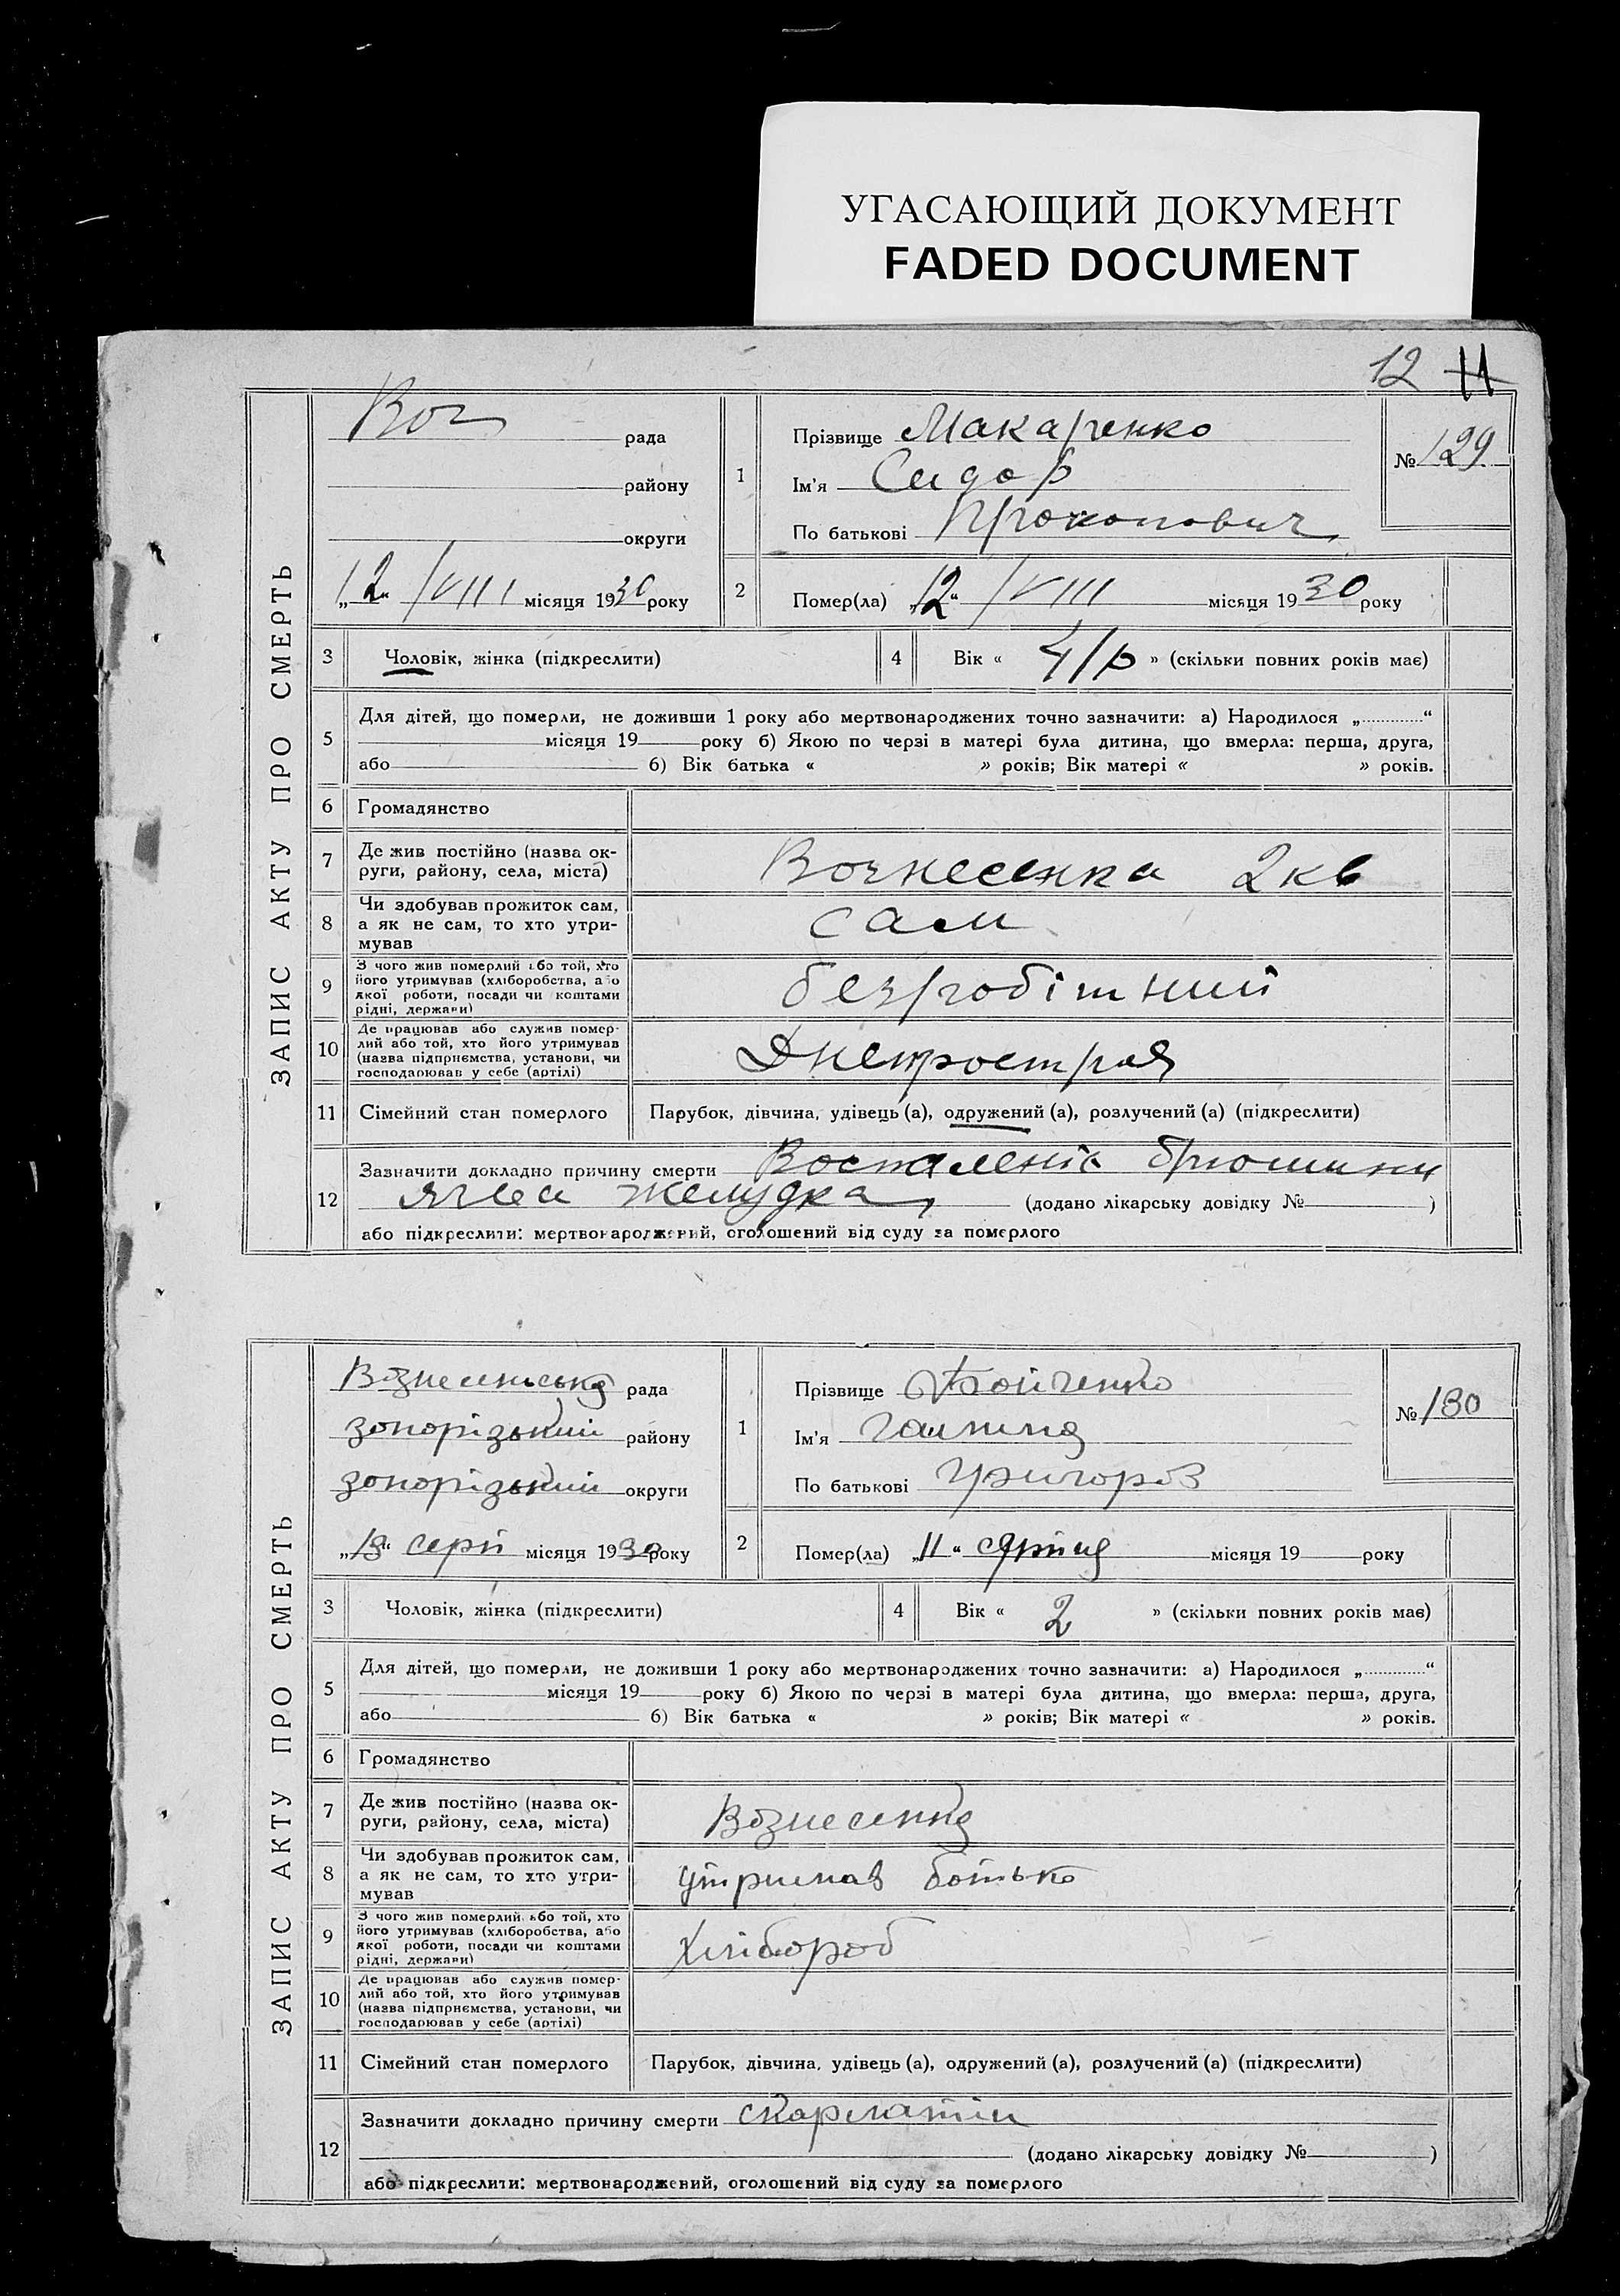 УГАСАЮЩИЙ ДОКУМЕНТ
FADED DOCUMENT
12 11
ЗАПИС АКТУ ПРО СМЕРТЬ
Воз рада
району
округи
„12“ /VIII місяця 1930 року
1
Прізвище Макаренко
Ім'я Сидор
По батькові Прокопович
№ 129
2 Помер(ла) „12“ /VIII місяця 1930 року
3 Чоловік, жінка (підкреслити)
4 Вік « » (скільки повних років має)
5 Для дітей, що померли, не доживши 1 року або мертвонароджених точно зазначити: а) Народилося „ “
місяця 19 року б) Якою по черзі в матері була дитина, що вмерла: перша, друга,
або б) Вік батька « » років; Вік матері « » років.
6 Громадянство
7 Де жив постійно (назва ок-
руги, району, села, міста)
Вознесенка 2кв
8 Чи здобував прожиток сам,
а як не сам, то хто утри-
мував
сам
9 З чого жив померлий або той, хто
його утримував (хліборобства, або
якої роботи, посади чи коштами
рідні, держави)
безробітний
10 Де працював або служив помер-
лий або той, хто його утримував
(назва підприємства, установи, чи
господарював у себе (артілі)
Днепрострой
11 Сімейний стан померлого Парубок, дівчина, удівець (а), одружений (а), розлучений (а) (підкреслити)
12 Зазначити докладно причину смерти Воспаленіе брюшини
язва желудка, (додано лікарську довідку № )
або підкреслити: мертвонароджений, оголошений від суду за померлого
ЗАПИС АКТУ ПРО СМЕРТЬ
Вознесенська рада
зопорізький району
зопорізький округи
„13“ серп місяця 1930 року
1
Прізвище
Ім'я Галина
По батькові Григоров
№ 130
2 Помер(ла) „11“ серпня місяця 19 року
3 Чоловік, жінка (підкреслити)
4 Вік « 2 » (скільки повних років має)
5 Для дітей, що померли, не доживши 1 року або мертвонароджених точно зазначити: а) Народилося „ “
місяця 19 року б) Якою по черзі в матері була дитина, що вмерла: перша, друга,
або б) Вік батька « » років; Вік матері « » років.
6 Громадянство
7 Де жив постійно (назва ок-
руги, району, села, міста)
Вознесенка
8 Чи здобував прожиток сам,
а як не сам, то хто утри-
мував
утримав батько
9 З чого жив померлий або той, хто
його утримував (хліборобства, або
якої роботи, посади чи коштами
рідні, держави)
хлібороб
10 Де працював або служив помер-
лий або той, хто його утримував
(назва підприємства, установи, чи
господарював у себе (артілі)
11 Сімейний стан померлого Парубок, дівчина, удівець (а), одружений (а), розлучений (а) (підкреслити)
12 Зазначити докладно причину смерти скарлатін
(додано лікарську довідку № )
або підкреслити: мертвонароджений, оголошений від суду за померлого